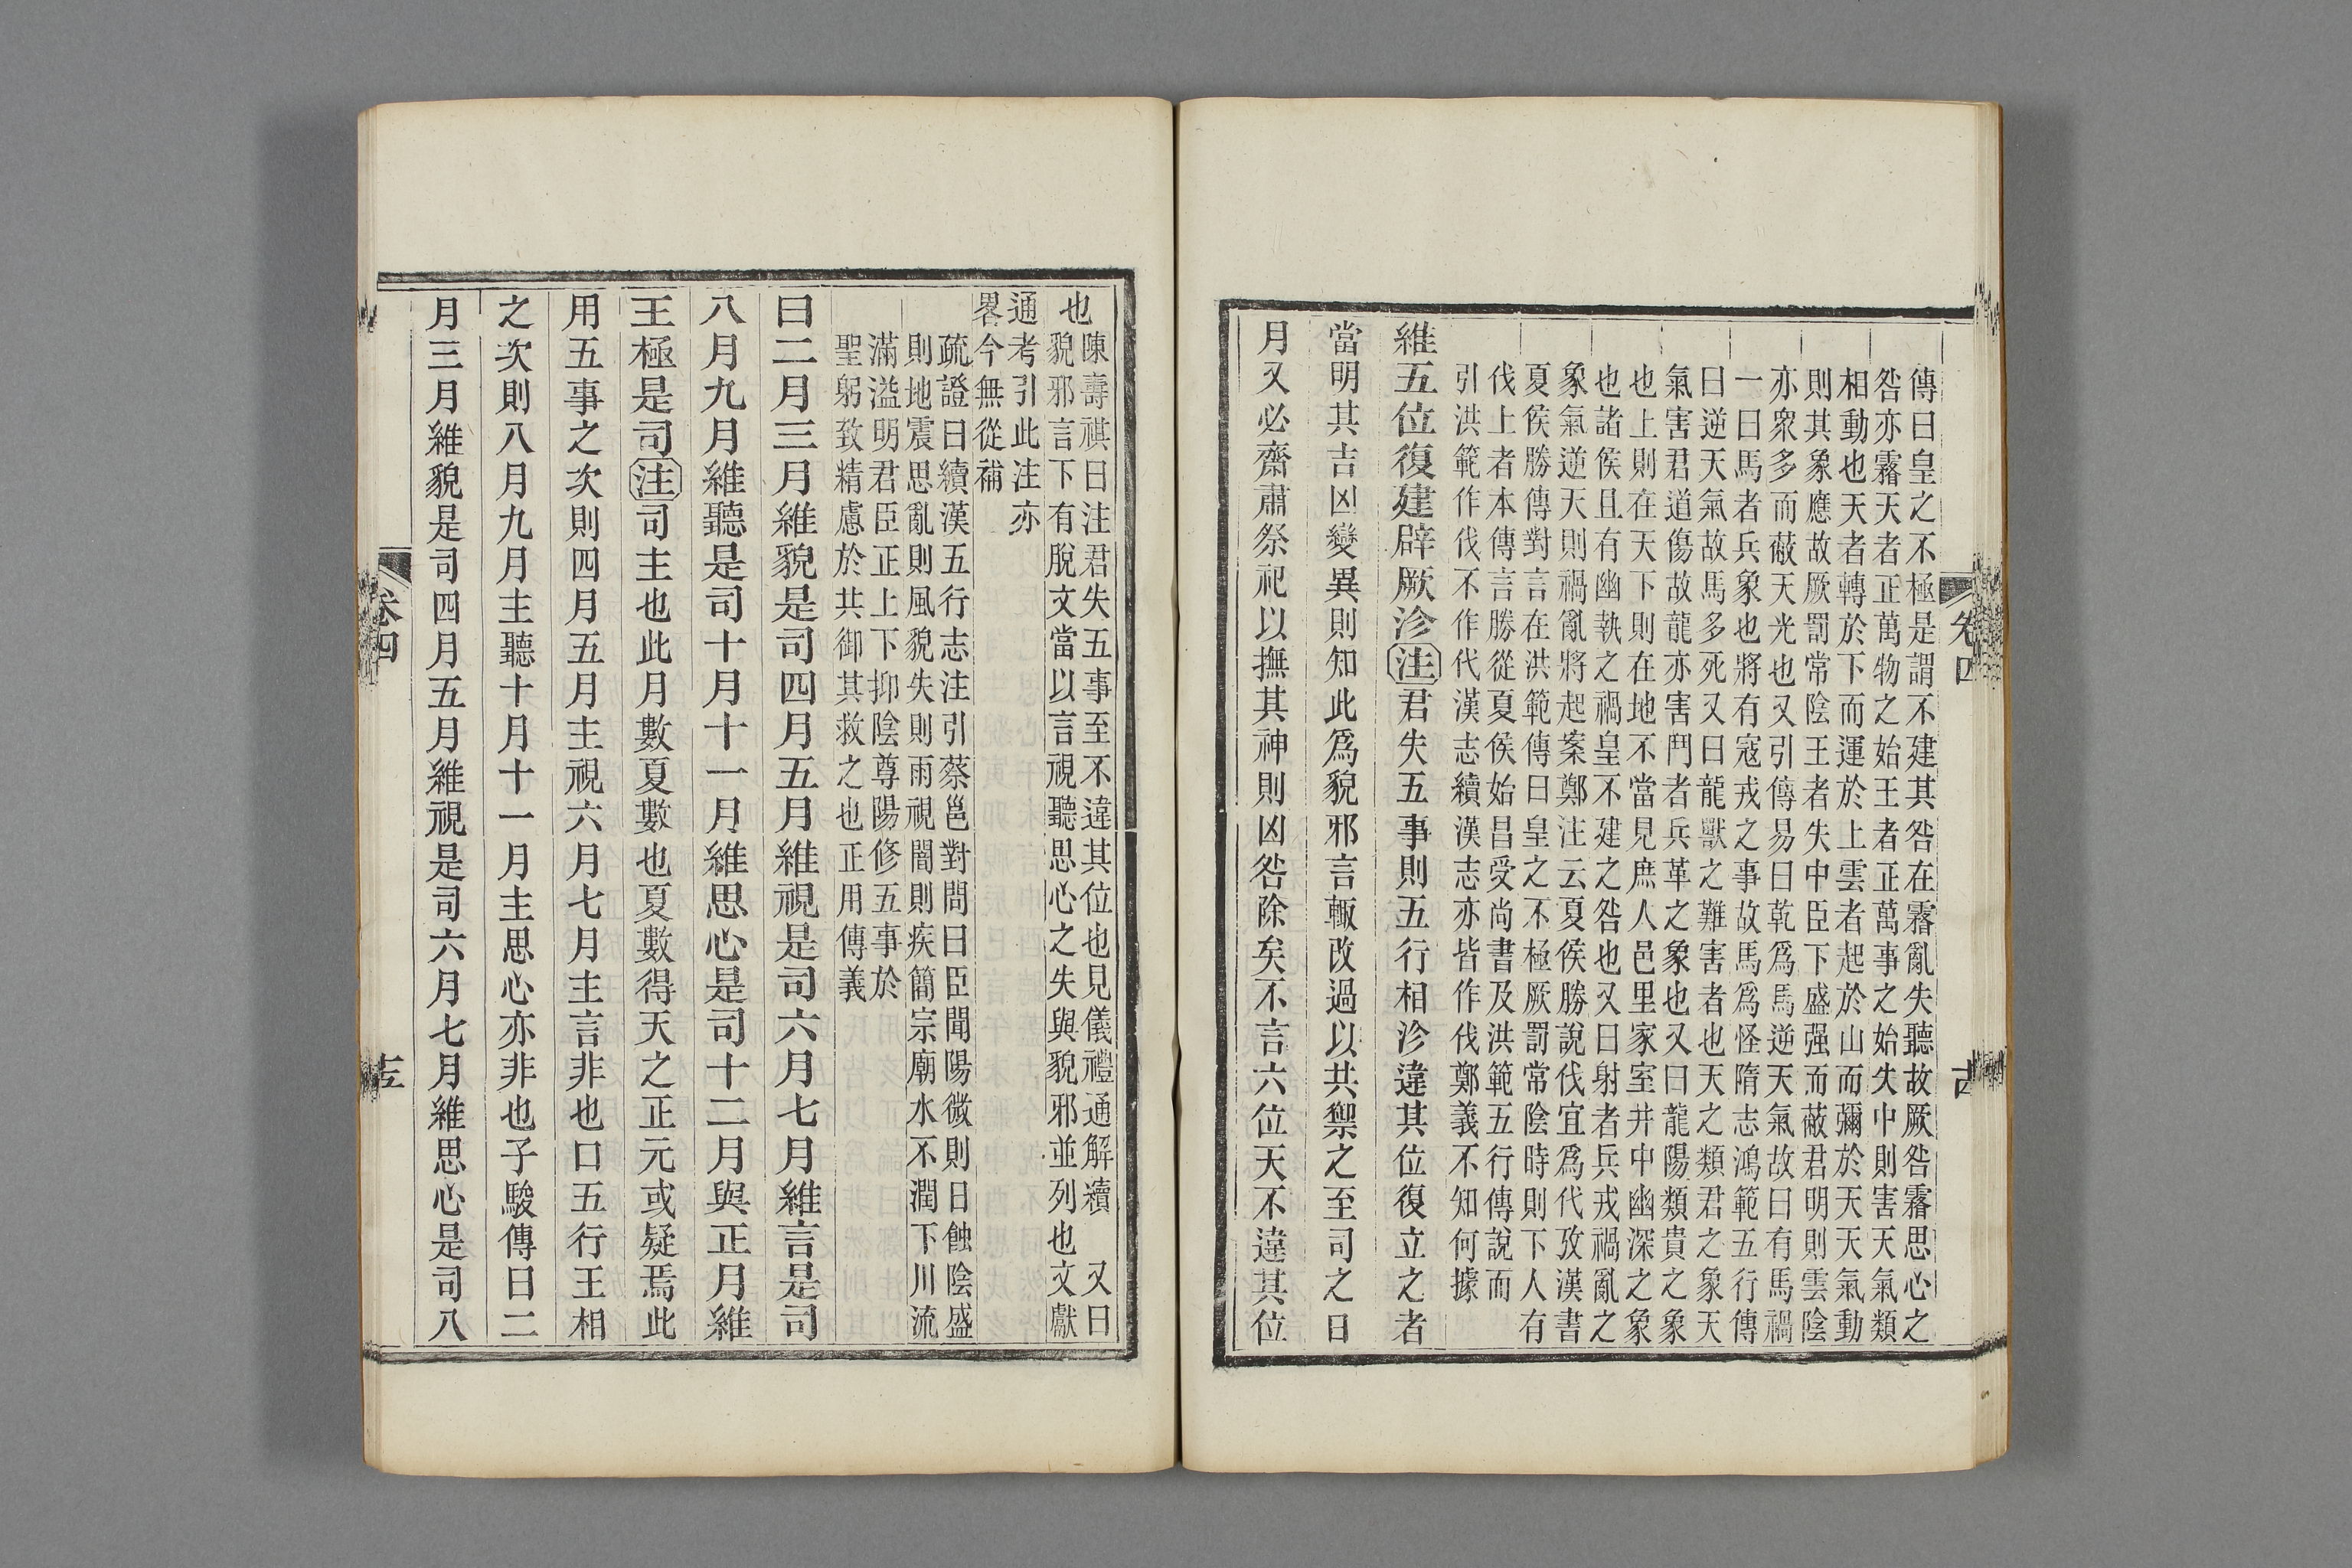 傳曰皇之不極是謂不建其咎在霿亂失聽故厥咎霿思心之
咎亦霿天者正萬物之始王者正萬事之始失中則害天氣類
相動也天者轉於下而運於上雲者起於山而彌於天天氣動
則其象應故厥罰常陰王者失中臣下盛强而蔽君明則雲陰
亦衆多而蔽天光也又引傳易曰乾爲馬逆天氣故曰有馬禍
一曰馬者兵象也將有寇戎之事故馬爲怪隋志鴻範五行傳
曰逆天氣故馬多死又曰龍獸之難害者也天之類君之象天
氣害君道傷故龍亦害鬥者兵革之象也又曰龍陽類貴之象
也上則在天下則在地不當見庶人邑里家室井中幽深之象
也諸侯且有幽執之禍皇不建之咎也又曰射者兵戎禍亂之
象氣逆天則禍亂將起案鄭注云夏侯勝說伐宜爲代攷漢書
夏侯勝傳對言在洪範傳曰皇之不極厥罰常陰時則下人有
伐上者本傳言勝從夏侯始昌受尚書及洪範五行傳說而
引洪範作伐不作代漢志續漢志亦皆作伐鄭義不知何據
維五位復建辟厥沴注君失五事則五行相沴違其位復立之者
當明其吉凶變異則知此爲貌邪言輙改過以共禦之至司之日
月又必齋肅祭祀以撫其神則凶咎除矣不言六位天不違其位
卷四
也陳壽祺曰注君失五事至不違其位也見儀禮通解續 又曰
貌邪言下有脫文當以言視聽思心之失與貌邪並列也文獻
通考引此注亦
畧今無從補
疏證曰續漢五行志注引蔡邕對問曰臣聞陽微則日蝕陰盛
則地震思亂則風貌失則雨視闇則疾簡宗廟水不潤下川流
滿溢明君臣正上下抑陰尊陽修五事於
聖躬致精慮於共御其救之也正用傳義
曰二月三月維貌是司四月五月維視是司六月七月維言是司
八月九月維聽是司十月十一月維思心是司十二月與正月維
王極是司注司主也此月數夏數也夏數得天之正元或疑焉此
用五事之次則四月五月主視六月七月主言非也口五行王相
之次則八月九月主聽十月十一月主思心亦非也子駿傳曰二
月三月維貌是司四月五月維視是司六月七月維思心是司八
卷四